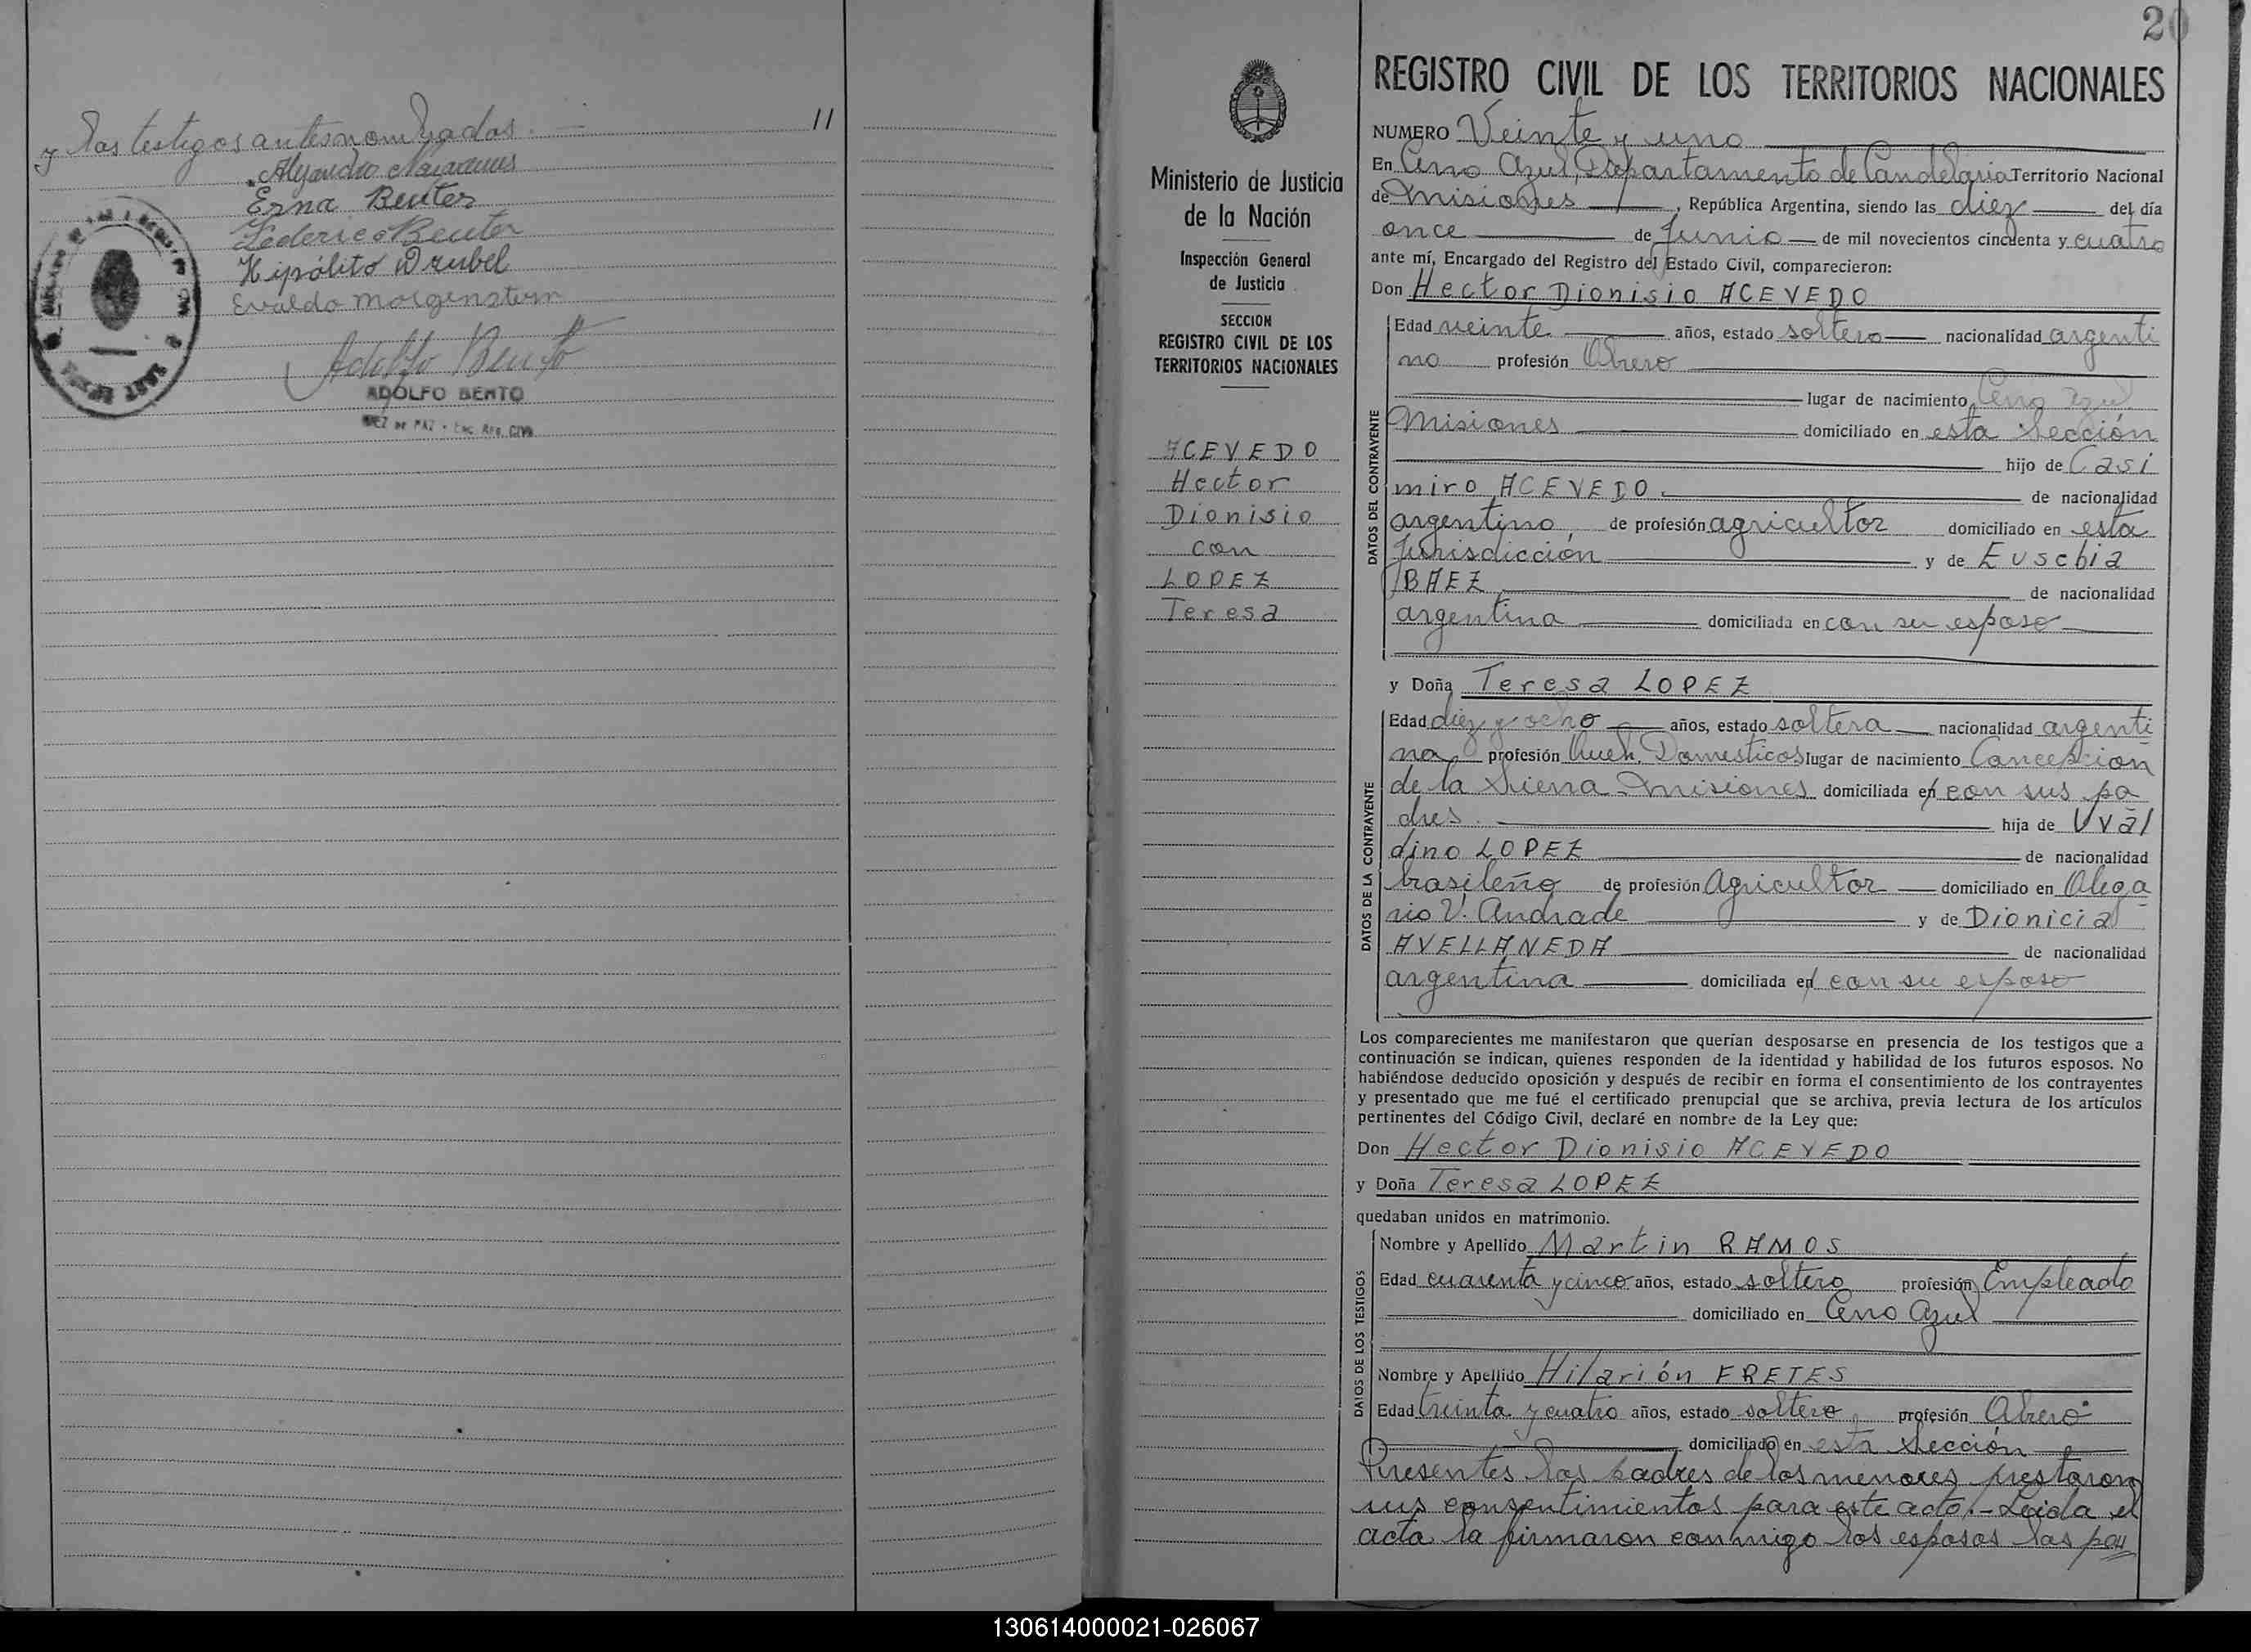 11
y los testigos antesnombrados.
Alejandro
Erna Beuter
Federico Beuter
Hipólito Drubel
Evaldo Morgenstern
Adolfo Bento
ADOLFO BENTO
JUEZ DE PAZ - Enc. Reg. CIVIL
20
Ministerio de Justicia
de la Nación
Inspección General
de Justicia
SECCION
REGISTRO CIVIL DE LOS
TERRITORIOS NACIONALES
ACEVEDO
Hector
Dionisio
con
LOPEZ
Teresa
REGISTRO CIVIL DE LOS TERRITORIOS NACIONALES
NUMERO Veinte y uno
En Cerro Azul, Departamento de Candelaria Territorio Nacional
de Misiones, República Argentina, siendo las diez del día
once de Junio de mil novecientos cincuenta y cuatro
ante mí, Encargado del Registro del Estado Civil, comparecieron:
Don Hector Dionisio ACEVEDO
DATOS DEL CONTRAYENTE
Edad veinte años, estado soltero nacionalidad argenti
no profesión Obrero
lugar de nacimiento Cerro Azul
Misiones domiciliado en esta Sección
hijo de Casi
miro ACEVEDO de nacionalidad
argentino de profesión agricultor domiciliado en esta
Jurisdicción y de Eusebia
BAEZ de nacionalidad
argentina domiciliada en con su esposo
y Doña Teresa LOPEZ
DATOS DE LA CONTRAYENTE
Edad diez y ocho años, estado soltera nacionalidad argenti
na profesión Queh. Domesticos lugar de nacimiento Concepcion
de la Sierra Misiones domiciliada en con sus pa
dres. hija de Uval
dino LOPEZ de nacionalidad
brasileño de profesión Agricultor domiciliado en Olega
rio V. Andrade y de Dionicia
AVELLANEDA de nacionalidad
argentina domiciliada en con su esposo
Los comparecientes me manifestaron que querían desposarse en presencia de los testigos que a
continuación se indican, quienes responden de la identidad y habilidad de los futuros esposos. No
habiéndose deducido oposición y después de recibir en forma el consentimiento de los contrayentes
y presentado que me fué el certificado prenupcial que se archiva, previa lectura de los artículos
pertinentes del Código Civil, declaré en nombre de la Ley que:
Don Hector Dionisio ACEVEDO
y Doña Teresa LOPEZ
quedaban unidos en matrimonio.
DATOS DE LOS TESTIGOS
Nombre y Apellido Martin RAMOS
Edad cuarenta y cinco años, estado soltero profesión Empleado
domiciliado en Cerro Azul
Nombre y Apellido Hilarión FRETES
Edad treinta y cuatro años, estado soltero profesión Obrero
domiciliado en esta Sección
Presentes los padres de los menores prestaron
sus consentimientos para este acto.- Leida el
acta la firmaron conmigo los esposos las par
130614000021-026067